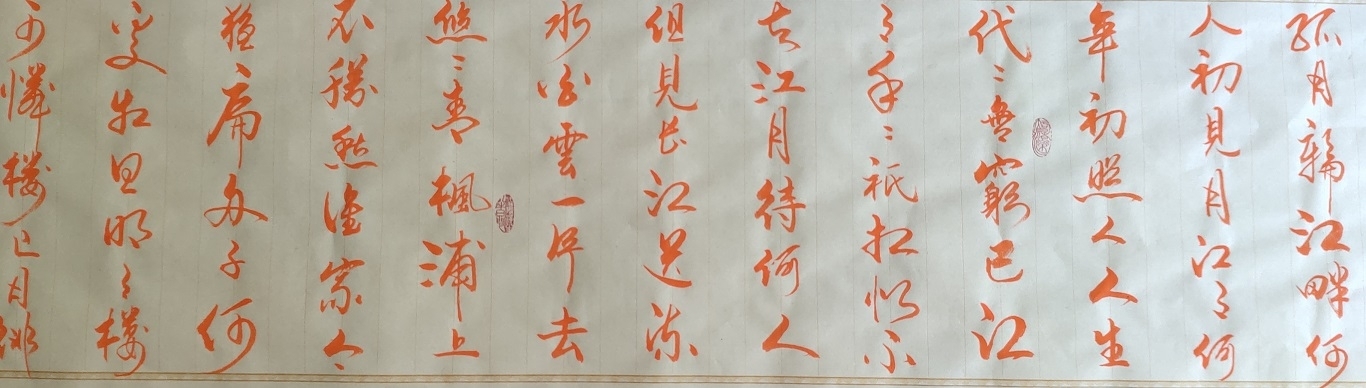 孤月輪江畔何
人初見月江月何
年初照人人生
代代無窮已江
月年年祇相似不
知江月待何人
但見長江送流
水白雲一片去
悠悠青楓浦上
不勝愁誰家今
夜扁舟子何
處相思明月樓
可憐樓上月徘